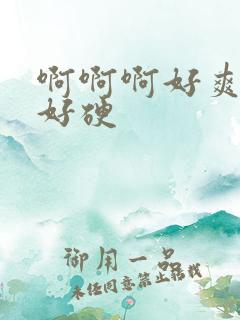 啊啊啊好爽
好硬
御用一品
未任同意禁止转载